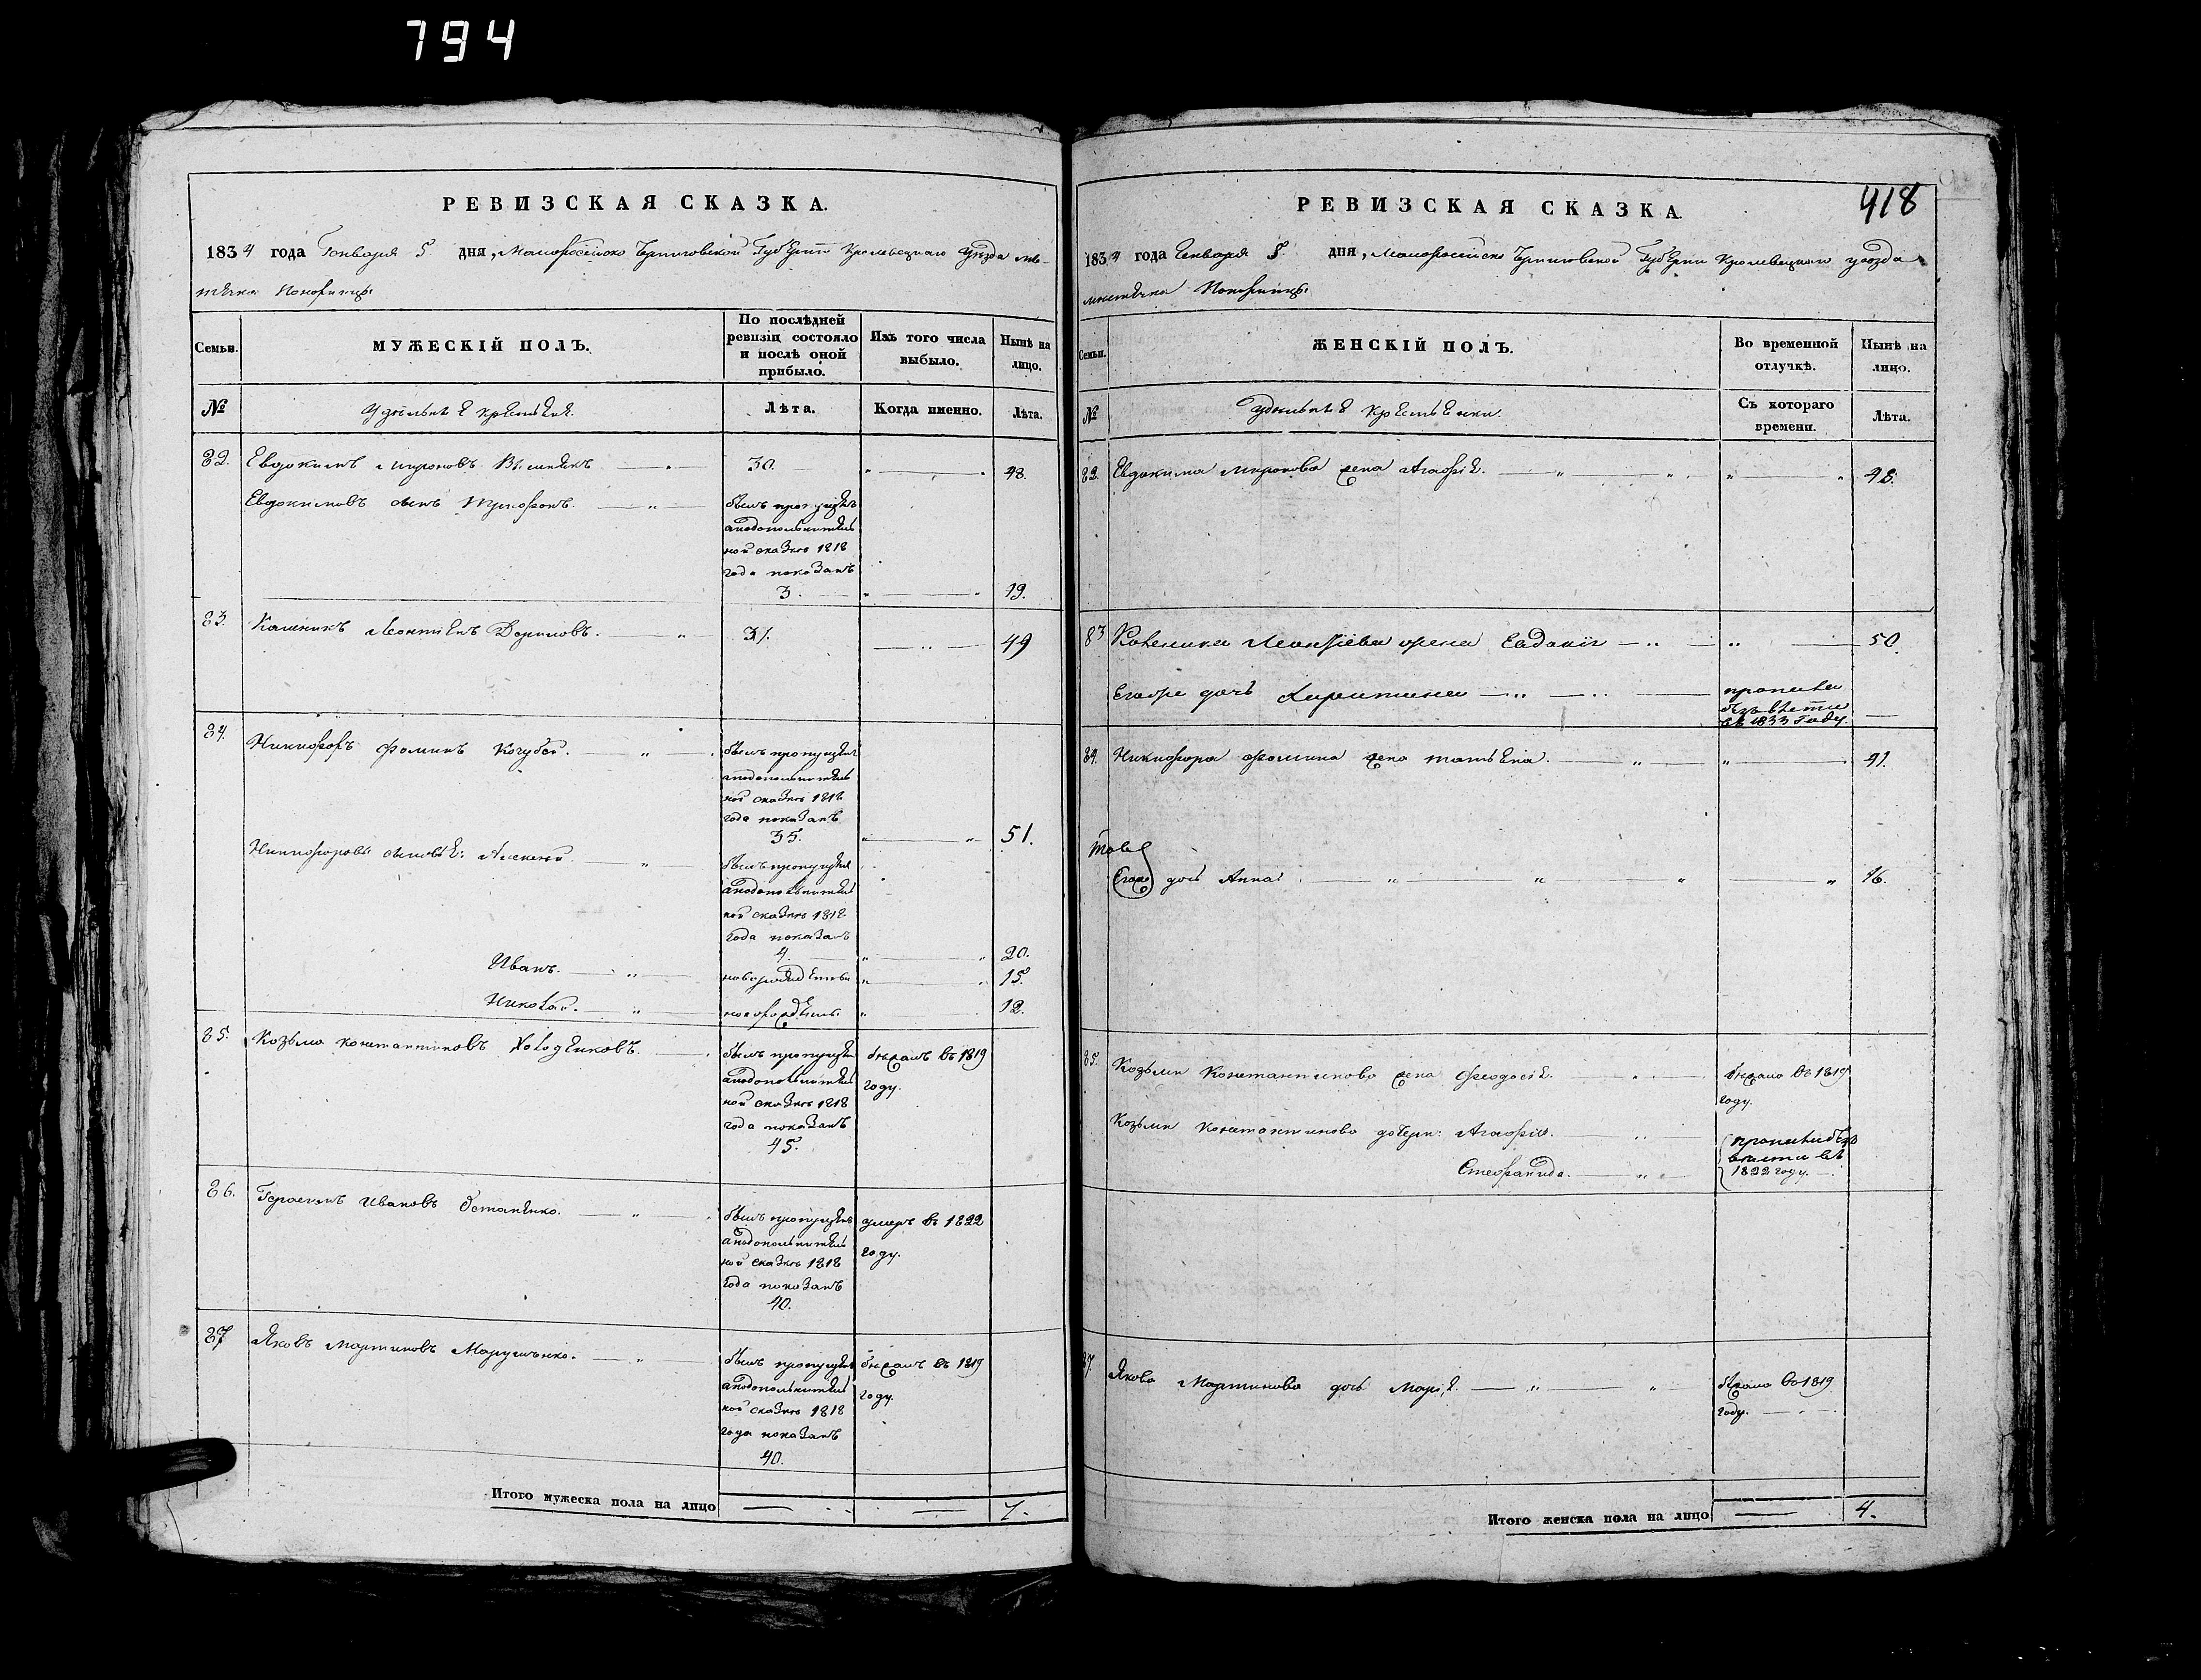 794
РЕВИЗСКАЯ СКАЗКА.
1834 года Генваря 5 дня, Малороссийско Черниговской Губернии Кролевецкаго уезда ме-
стечка Понорницы
Семьи.
МУЖЕСКІЙ ПОЛЪ.
По послѣдней ревизіи состояло и послѣ оной прибыло.
Изъ того числа выбыло.
Нынѣ на лицо.
№
Удельные крестьяне.
Лѣта.
Когда именно.
Лѣта.
82. Евдокимъ Мироновъ 30. 48.
Евдокимовъ сынъ Трифонъ. былъ пропущенъ
а по дополнитель
ной сказке 1818
года показанъ
3. 19.
83. Калиникъ Леонтіевъ 31. 49
84. Никифоръ Фоминъ Кочубей. былъ пропущенъ
а по дополнитель
ной сказке 1818
года показанъ
35. 51.
Никифоровы сыновье: Алексей былъ пропущенъ
а по дополнитель
ной сказке 1818
года показанъ
4. 20.
Иванъ. новорожденны 15.
Николай. новорожденны 12.
85. Козьма Константиновъ былъ пропущенъ бежалъ въ 1819
а по дополнитель году.
ной сказке 1818
года показанъ
45.
86. Герасимъ Ивановъ Остапенко. былъ пропущенъ умеръ въ 1822
а по дополнитель году.
ной сказке 1818
года показанъ
40.
87 Яковъ Мартиновъ былъ пропущенъ бежалъ въ 1819
а по дополнитель году.
ной сказке 1818
года показанъ
40.
Итого мужеска пола на лицо 7.
418
РЕВИЗСКАЯ СКАЗКА.
1834 года Генваря 5. дня, Малороссийско Черниговской Губернии Кролевецкаго уезда
местечка Понорницы
Семьи.
ЖЕНСКІЙ ПОЛЪ.
Во временной отлучкѣ.
Нынѣ на лицо.
№
Удельные крестьянки.
Съ котораго времени.
Лѣта.
82. Евдокима Миронова жена Агафіе. 48.
83 Калиника Леонтіева жена Евдокія 50.
Егоже дочь Харитина пропала
безъ вести
въ 1833 году.
84. Никифора Фомина жена Татьяна. 41.
Того
Егоже дочь Анна 16.
85. Козьмы Константинова жена Феодосіе. бежала въ 1819
году.
Козьмы Константинова дочери: Агафія. пропали безъ
вести въ
Стефанида. 1822 году.
87. Якова Мартинова дочь Маріе. бежала въ 1819
году.
Итого женска пола на лицо 4.